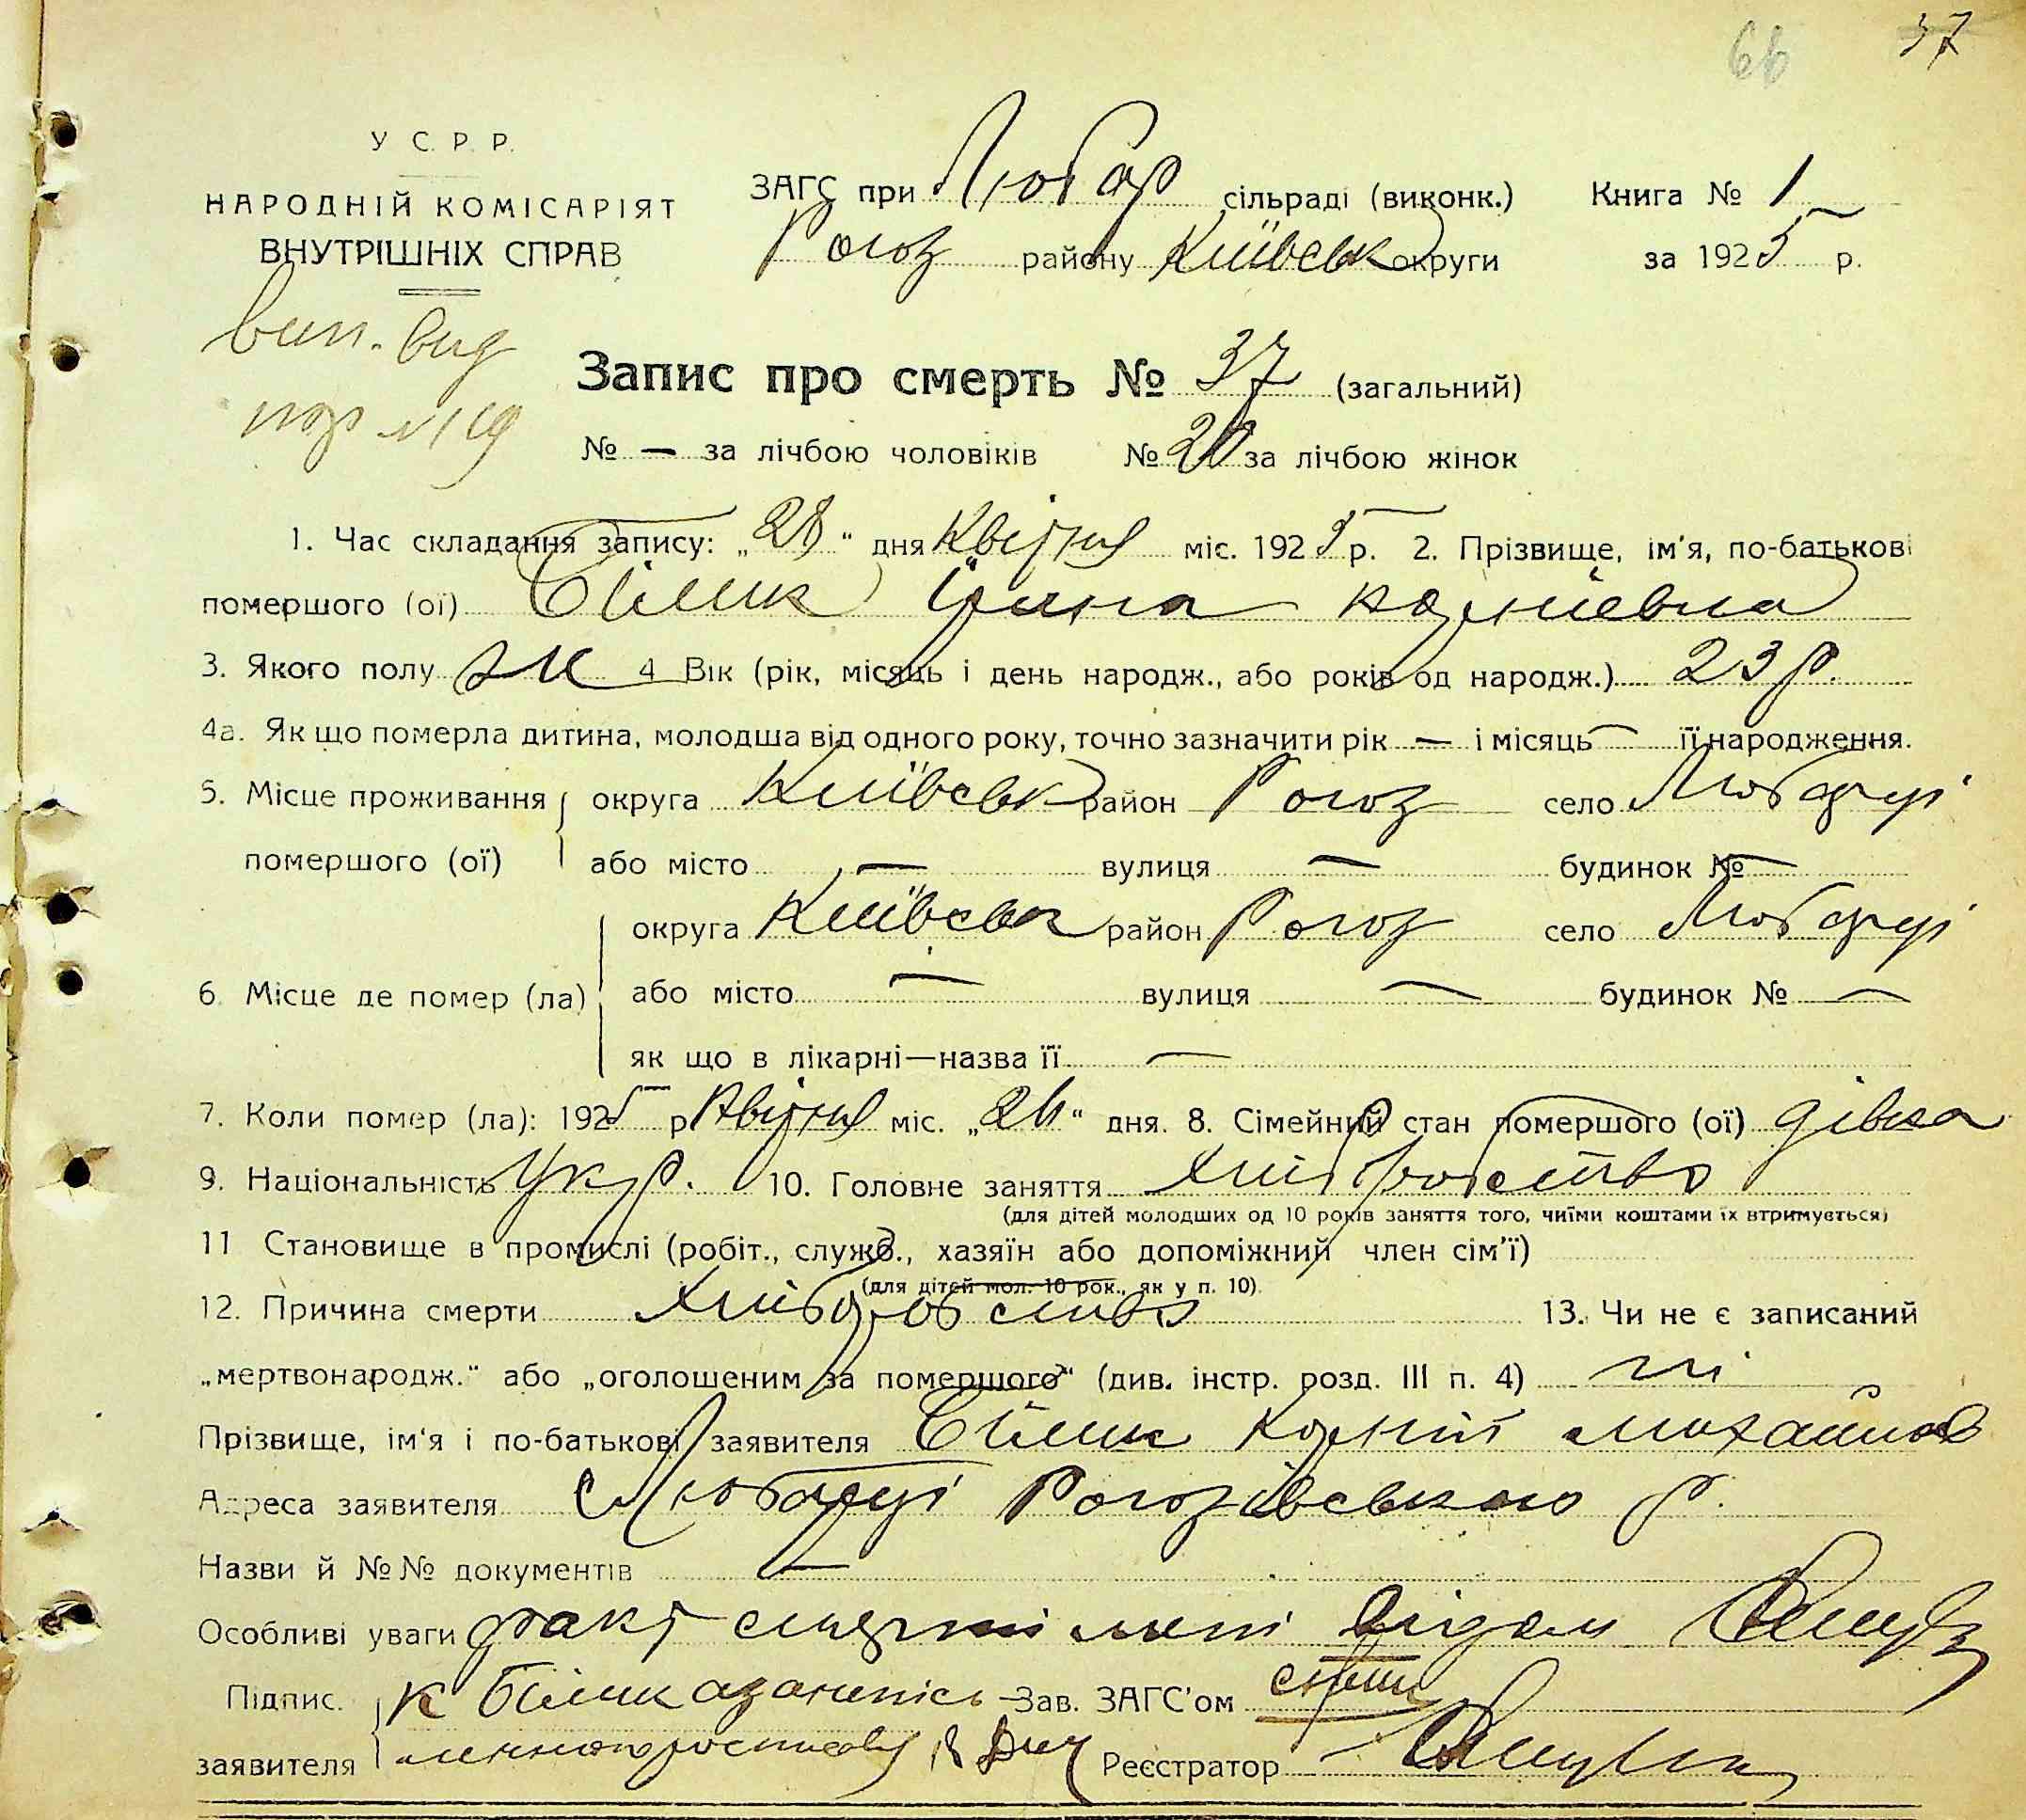 66 37
У С. Р. Р.
НАРОДНІЙ КОМІСАРІЯТ
ВНУТРІШНІХ СПРАВ
ЗАГС при Любар сільраді (виконк.) Книга № 1
Рогоз району Київськ округи за 1925 р.
вип. вид
Запис про смерть № 37 (загальний)
№ — за лічбою чоловіків № 20 за лічбою жінок
1. Час складання запису: „28“ дня Квітня міс. 1925 р. 2. Прізвище, ім'я, по-батькові
помершого (ої) Білик Ірина Корніевна
3. Якого полу ж 4 Вік (рік, місяць і день народж., або років од народж.) 23 р.
4а. Як що померла дитина, молодша від одного року, точно зазначити рік — і місяць — її народження.
5. Місце проживання округа Київськ район Рогоз село Любарці
помершого (ої) або місто — вулиця — будинок № —
округа Київськ район Рогоз село Любарці
6. Місце де помер (ла) або місто — вулиця — будинок № —
як що в лікарні—назва її —
7. Коли помер (ла): 1925 р Квітня міс. „26“ дня. 8. Сімейний стан помершого (ої) дівка
9. Національність Укр. 10. Головне заняття хліборобство
(для дітей молодших од 10 років заняття того, чиїми коштами їх втримується)
11 Становище в промислі (робіт., служб., хазяїн або допоміжний член сім'ї)
(для дітей мол. 10 рок., як у п. 10).
12. Причина смерти хліборобство 13. Чи не є записаний
„мертвонародж.“ або „оголошеним за помершого“ (див. інстр. розд. III п. 4) ні
Прізвище, ім'я і по-батькові заявителя Білик Корній Михайлов
Адреса заявителя с Любарці Рогозівського р.
Назви й №№ документів —
Особливі уваги факт смерти мені відом
Підпис. К Білик Зав. ЗАГС'ом
заявителя Реєстратор